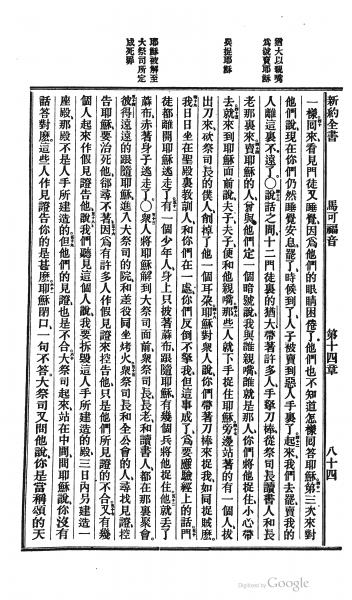 新約全書
馬可福音
第十四章
八十四
猶大以親嘴
為號賣耶穌
兵捉耶穌
耶穌被解至
大祭司所定
成死罪
一樣回來看見門徒又睡覺因為他們的眼睛困倦了他們也不知道怎樣回答耶穌第三次來對
他們說現在你們仍然睡覺安息罷了時候到了人子被賣到惡人手裏了起來我們去罷賣我的
人離這裏不遠了〇說話之間十二門徒裏的猶大帶著許多人手拏刀棒從祭司長讀書人和長
老那裏來賣耶穌的人曾與他們定一個暗號說我與誰親嘴誰就是那人你們將他捉住小心帶
去就來到耶穌面前說夫子夫子便和他親嘴那些人就下手捉住耶穌旁邊站著的有一個人拔
出刀來砍祭司長的僕人削掉了他一個耳朶耶穌對衆人說你們帶著刀棒來捉我如同捉賊麼
我日日坐在聖殿裏教訓人和你們在一處你們反倒不拏我但這事成了為要應驗經上的話門
徒都離開耶穌逃走了有一個少年人身上只披著蔴布跟隨耶穌有幾個兵將他捉住他就丟了
蔴布赤著身子逃走了〇衆人將耶穌解到大祭司面前衆祭司長長老和讀書人都在那裏聚會
彼得遠遠的跟隨耶穌進入大祭司的院和差役同坐烤火衆祭司長和全公會的人尋找見證控
告耶穌要治死他卻尋不著因為有許多人作假見證來控告他只是他們所見證的不合又有幾
個人起來作假見證告他說我們聽見這個人說我要拆毀這人手所造的殿三日內另建造一
座殿那殿不是人手所建造的但他們的見證也是不合大祭司起來站在中間問耶穌說你沒有
話答對麼這些人作見證告你的是甚麼耶穌閉口一句不答大祭司又問他說你是當稱頌的天
Digitized by Google